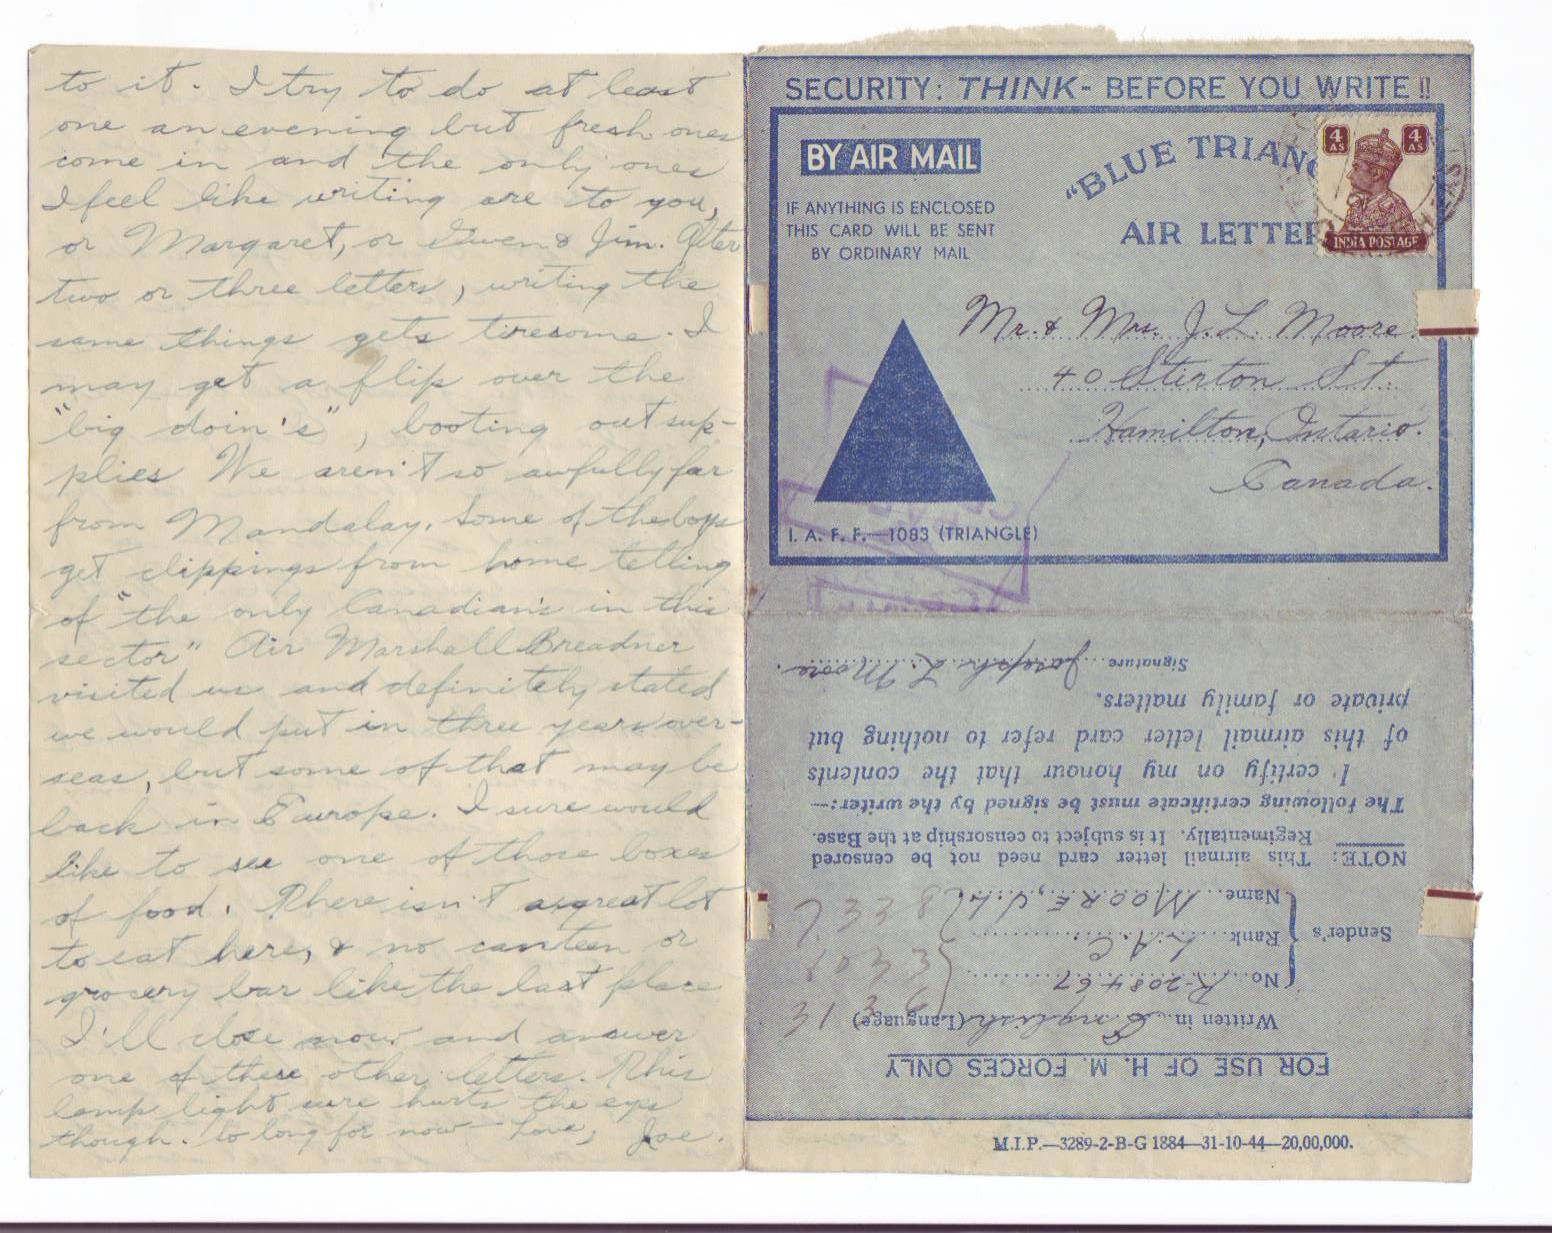 to it. I try to do at least
one an evening but fresh ones
come in and the only ones
I feel like writing are to you,
or Margaret, or Gwen & Jim. After
two or three letters, writing the
same things gets tiresome. I
may get a flip over the
"big doin's", booting out sup-
plies We aren't so awfully far
from Mandalay. Some of the boys
get clippings from home telling
of "the only Canadian's in this
sector" Air Marshall Breadner
visited us and definitely stated
we would put in three years over-
seas, but some of that may be
back in Europe. I sure would
like to see one of those boxes
of food. There isn't a great lot
to eat here, & no canteen or
grocery bar like the last place
I'll close now and answer
one of these other letters. This
lamp light sure hurts the eyes
though. So long for now – Love, Joe.
SECURITY: THINK - BEFORE YOU WRITE !!
BY AIR MAIL
"BLUE TRIANG
AIR LETTER
4 AS 4 AS
INDIA POSTAGE
IF ANYTHING IS ENCLOSED
THIS CARD WILL BE SENT
BY ORDINARY MAIL
Mr. & Mrs. J. L. Moore.
40 Stirton St.
Hamilton, Ontario.
Canada.
I. A. F. F.—1083 (TRIANGLE)
FOR USE OF H. M. FORCES ONLY
Written in English (Language)
Sender's
No. R-208467
Rank L.A.C.
Name MOORE, J. L.
NOTE: This airmail letter card need not be censored
Regimentally. It is subject to censorship at the Base.
The following certificate must be signed by the writer:—
I certify on my honour that the contents
of this airmail letter card refer to nothing but
private or family matters.
Signature Joseph L. Moore.
M.I.P.—3289-2-B-G 1884—31-10-44—20,00,000.